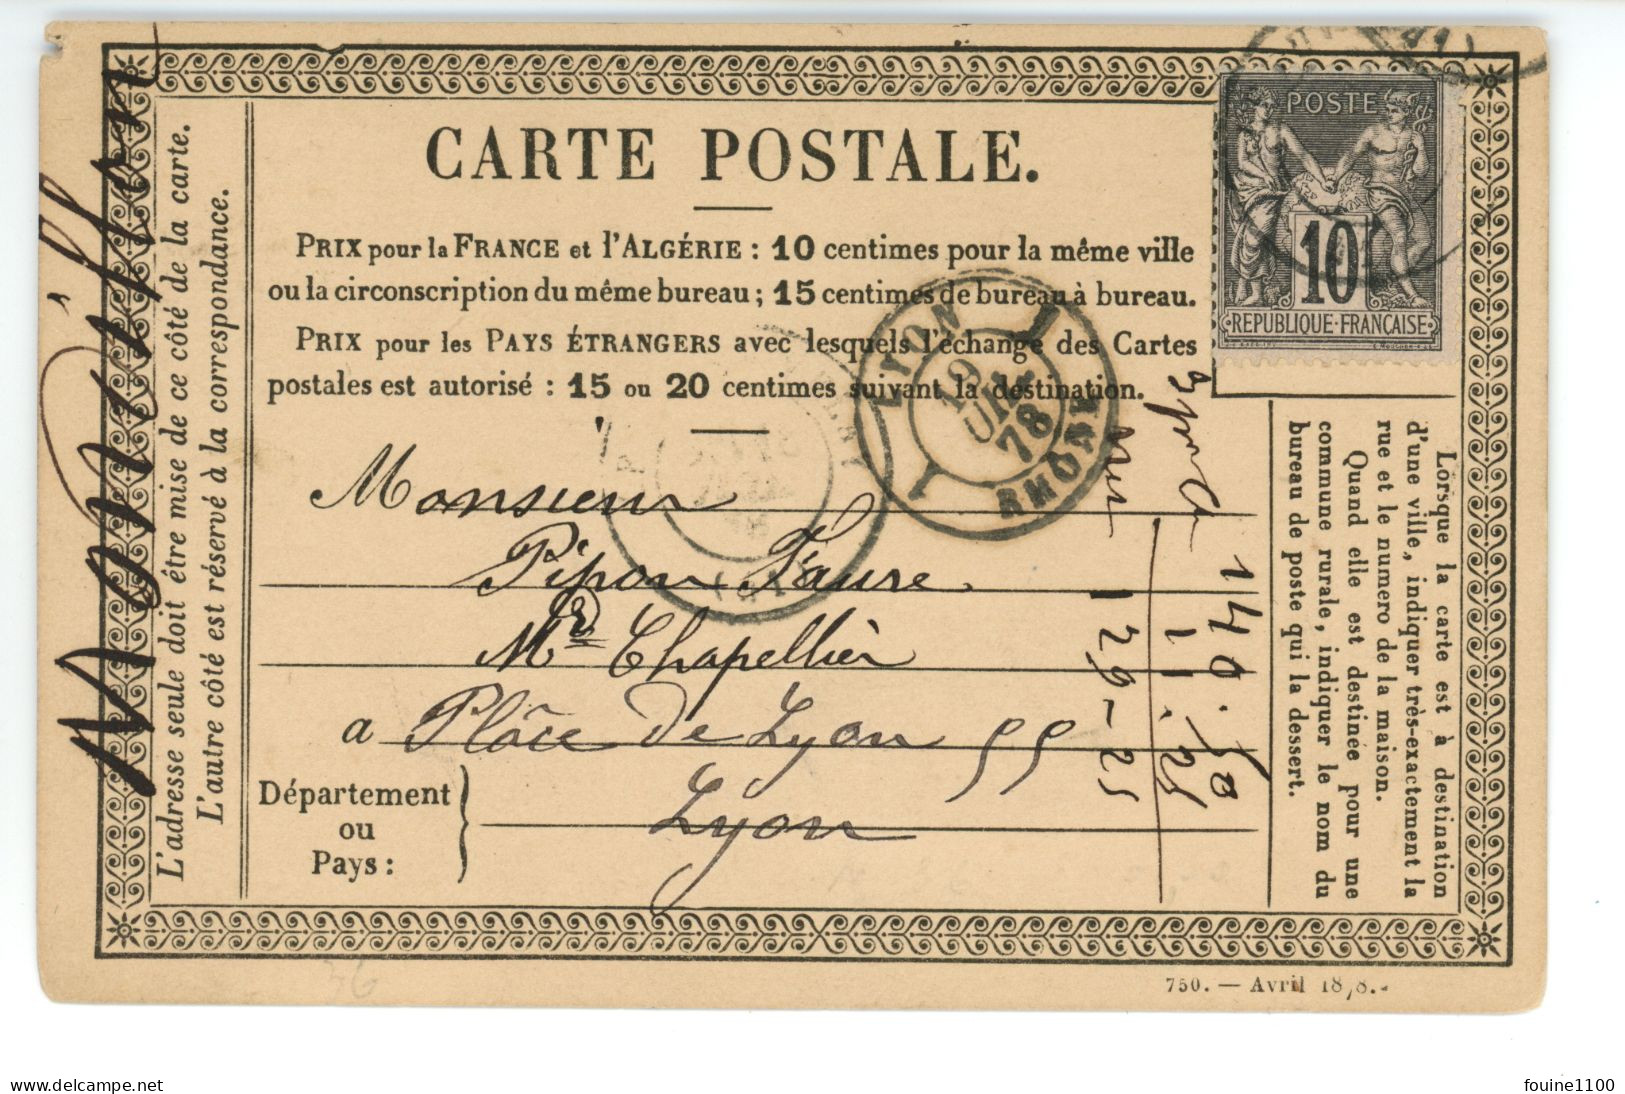 CARTE POSTALE.
PRIX pour la FRANCE et l'ALGÉRIE : 10 centimes pour la même ville
ou la circonscription du même bureau ; 15 centimes de bureau à bureau.
PRIX pour les PAYS ÉTRANGERS avec lesquels l'échange des Cartes
postales est autorisé : 15 ou 20 centimes suivant la destination.
POSTE
10
REPUBLIQUE·FRANÇAISE
LYON
19
JUIL.
78
RHONE
Monsieur
Pipon Faure.
Mr Chapellier
a Place de Lyon 55
Lyon
Département
ou
Pays :
L'adresse seule doit être mise de ce côté de la carte.
L'autre côté est réservé à la correspondance.
140.50
11.25
129-25
Lorsque la carte est à destination
d'une ville, indiquer très-exactement la
rue et le numero de la maison.
Quand elle est destinée pour une
commune rurale, indiquer le nom du
bureau de poste qui la dessert.
750. — Avril 1878.
36
delcampe.net
fouine1100